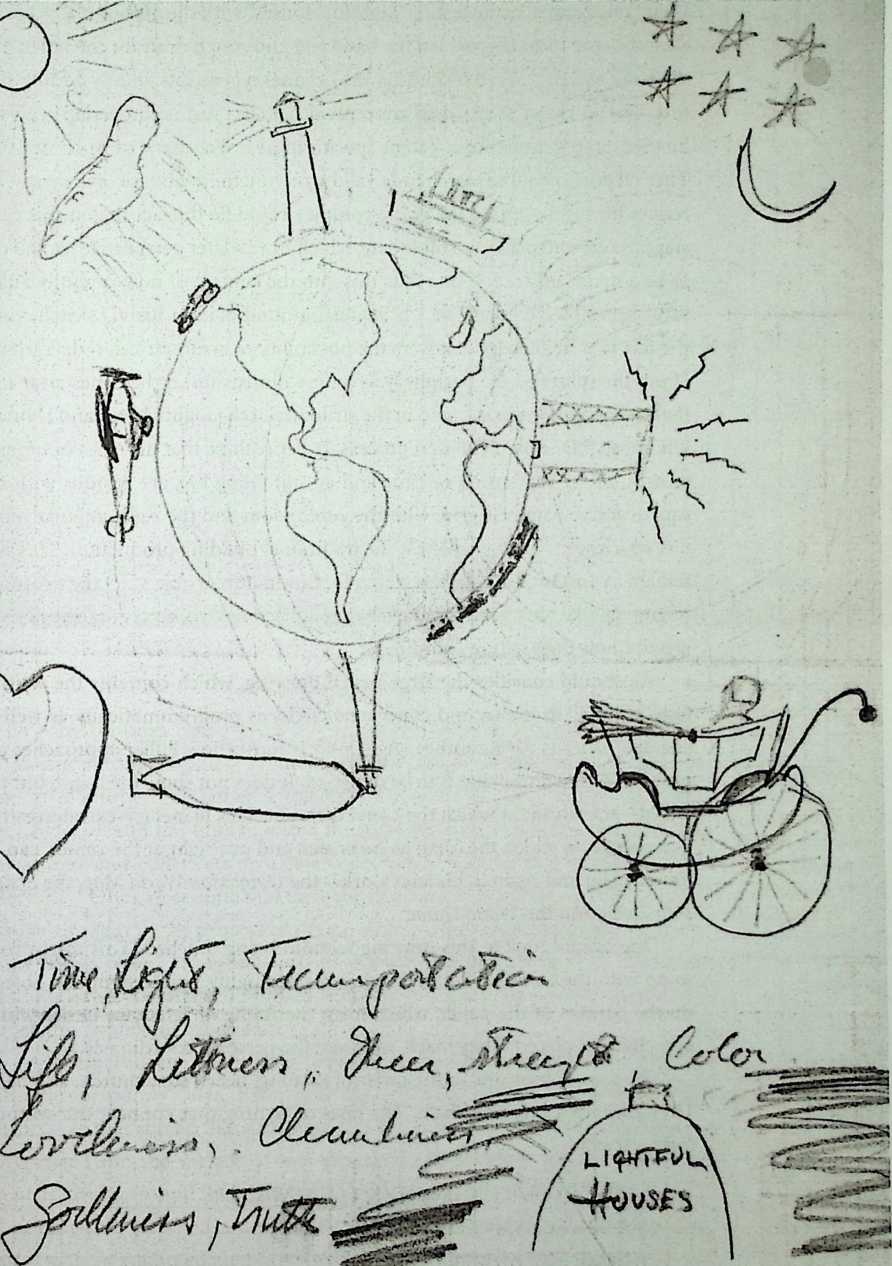 Time, Light, Transportation
Life, Sheer, strength, Color
Loveliness, Cleanliness
Godliness, Truth
LIGHTFUL
HOUSES